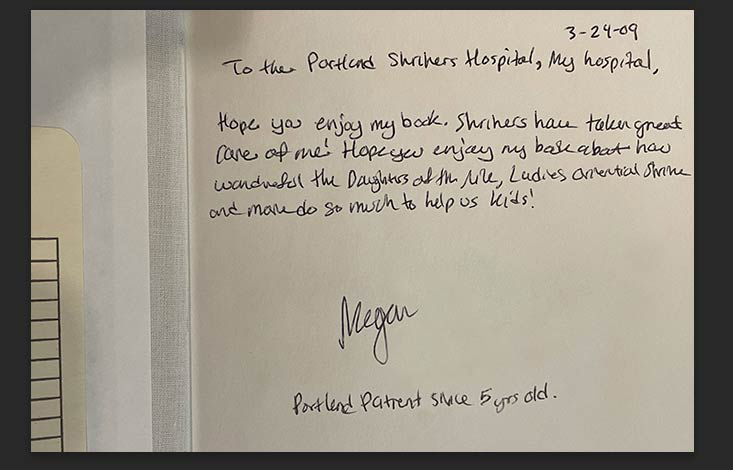 3-24-09
To the Portland Shriners Hospital, My hospital,
Hope you enjoy my book. Shriners have taken great
care of me! Hope you enjoy my book about how
wonderful the Daughters of the Nile, Ladies Oriental Shrine
and more do so much to help us kids!
Megan
Portland Patient since 5 yrs old.